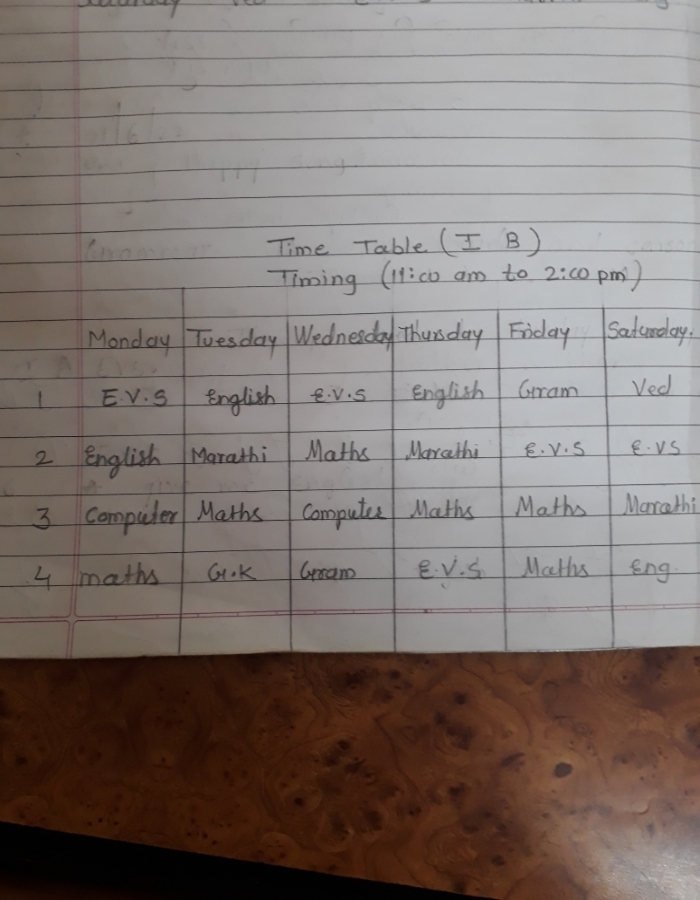 Saturday Ved
Time Table (I B)
Timing (11:00 am to 2:00 pm)
Monday Tuesday Wednesday Thursday Friday Saturday.
1 E.V.S English E.V.S English Gram Ved
2 English Marathi Maths Marathi E.V.S E.VS
3 Computer Maths Computer Maths Maths Marathi
4 maths G.K Gram E.V.S Maths Eng.